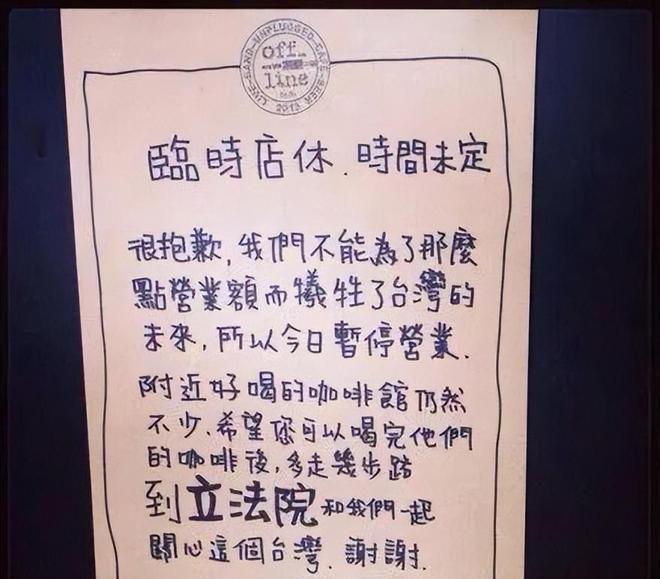 LIVE-BAND-UNPLUGGED-CAFE-BEER
off_
line
2013
臨時店休．時間未定
很抱歉，我們不能為了那麼
點營業額而犧牲了台灣的
未來，所以今日暫停營業．
附近好喝的咖啡館仍然
不少、希望您可以喝完他們
的咖啡後，多走幾步路
到立法院和我們一起
關心這個台灣．謝謝．